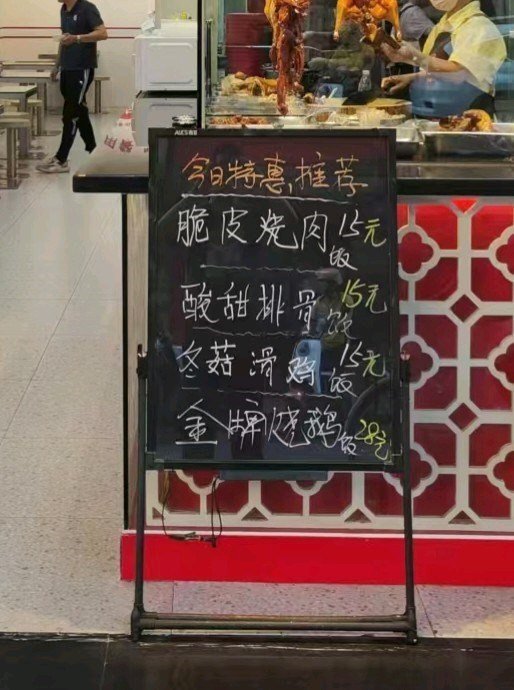 今日特惠推荐
脆皮烧肉饭15元
酸甜排骨饭15元
冬菇滑鸡饭15元
金牌烧鹅饭28元